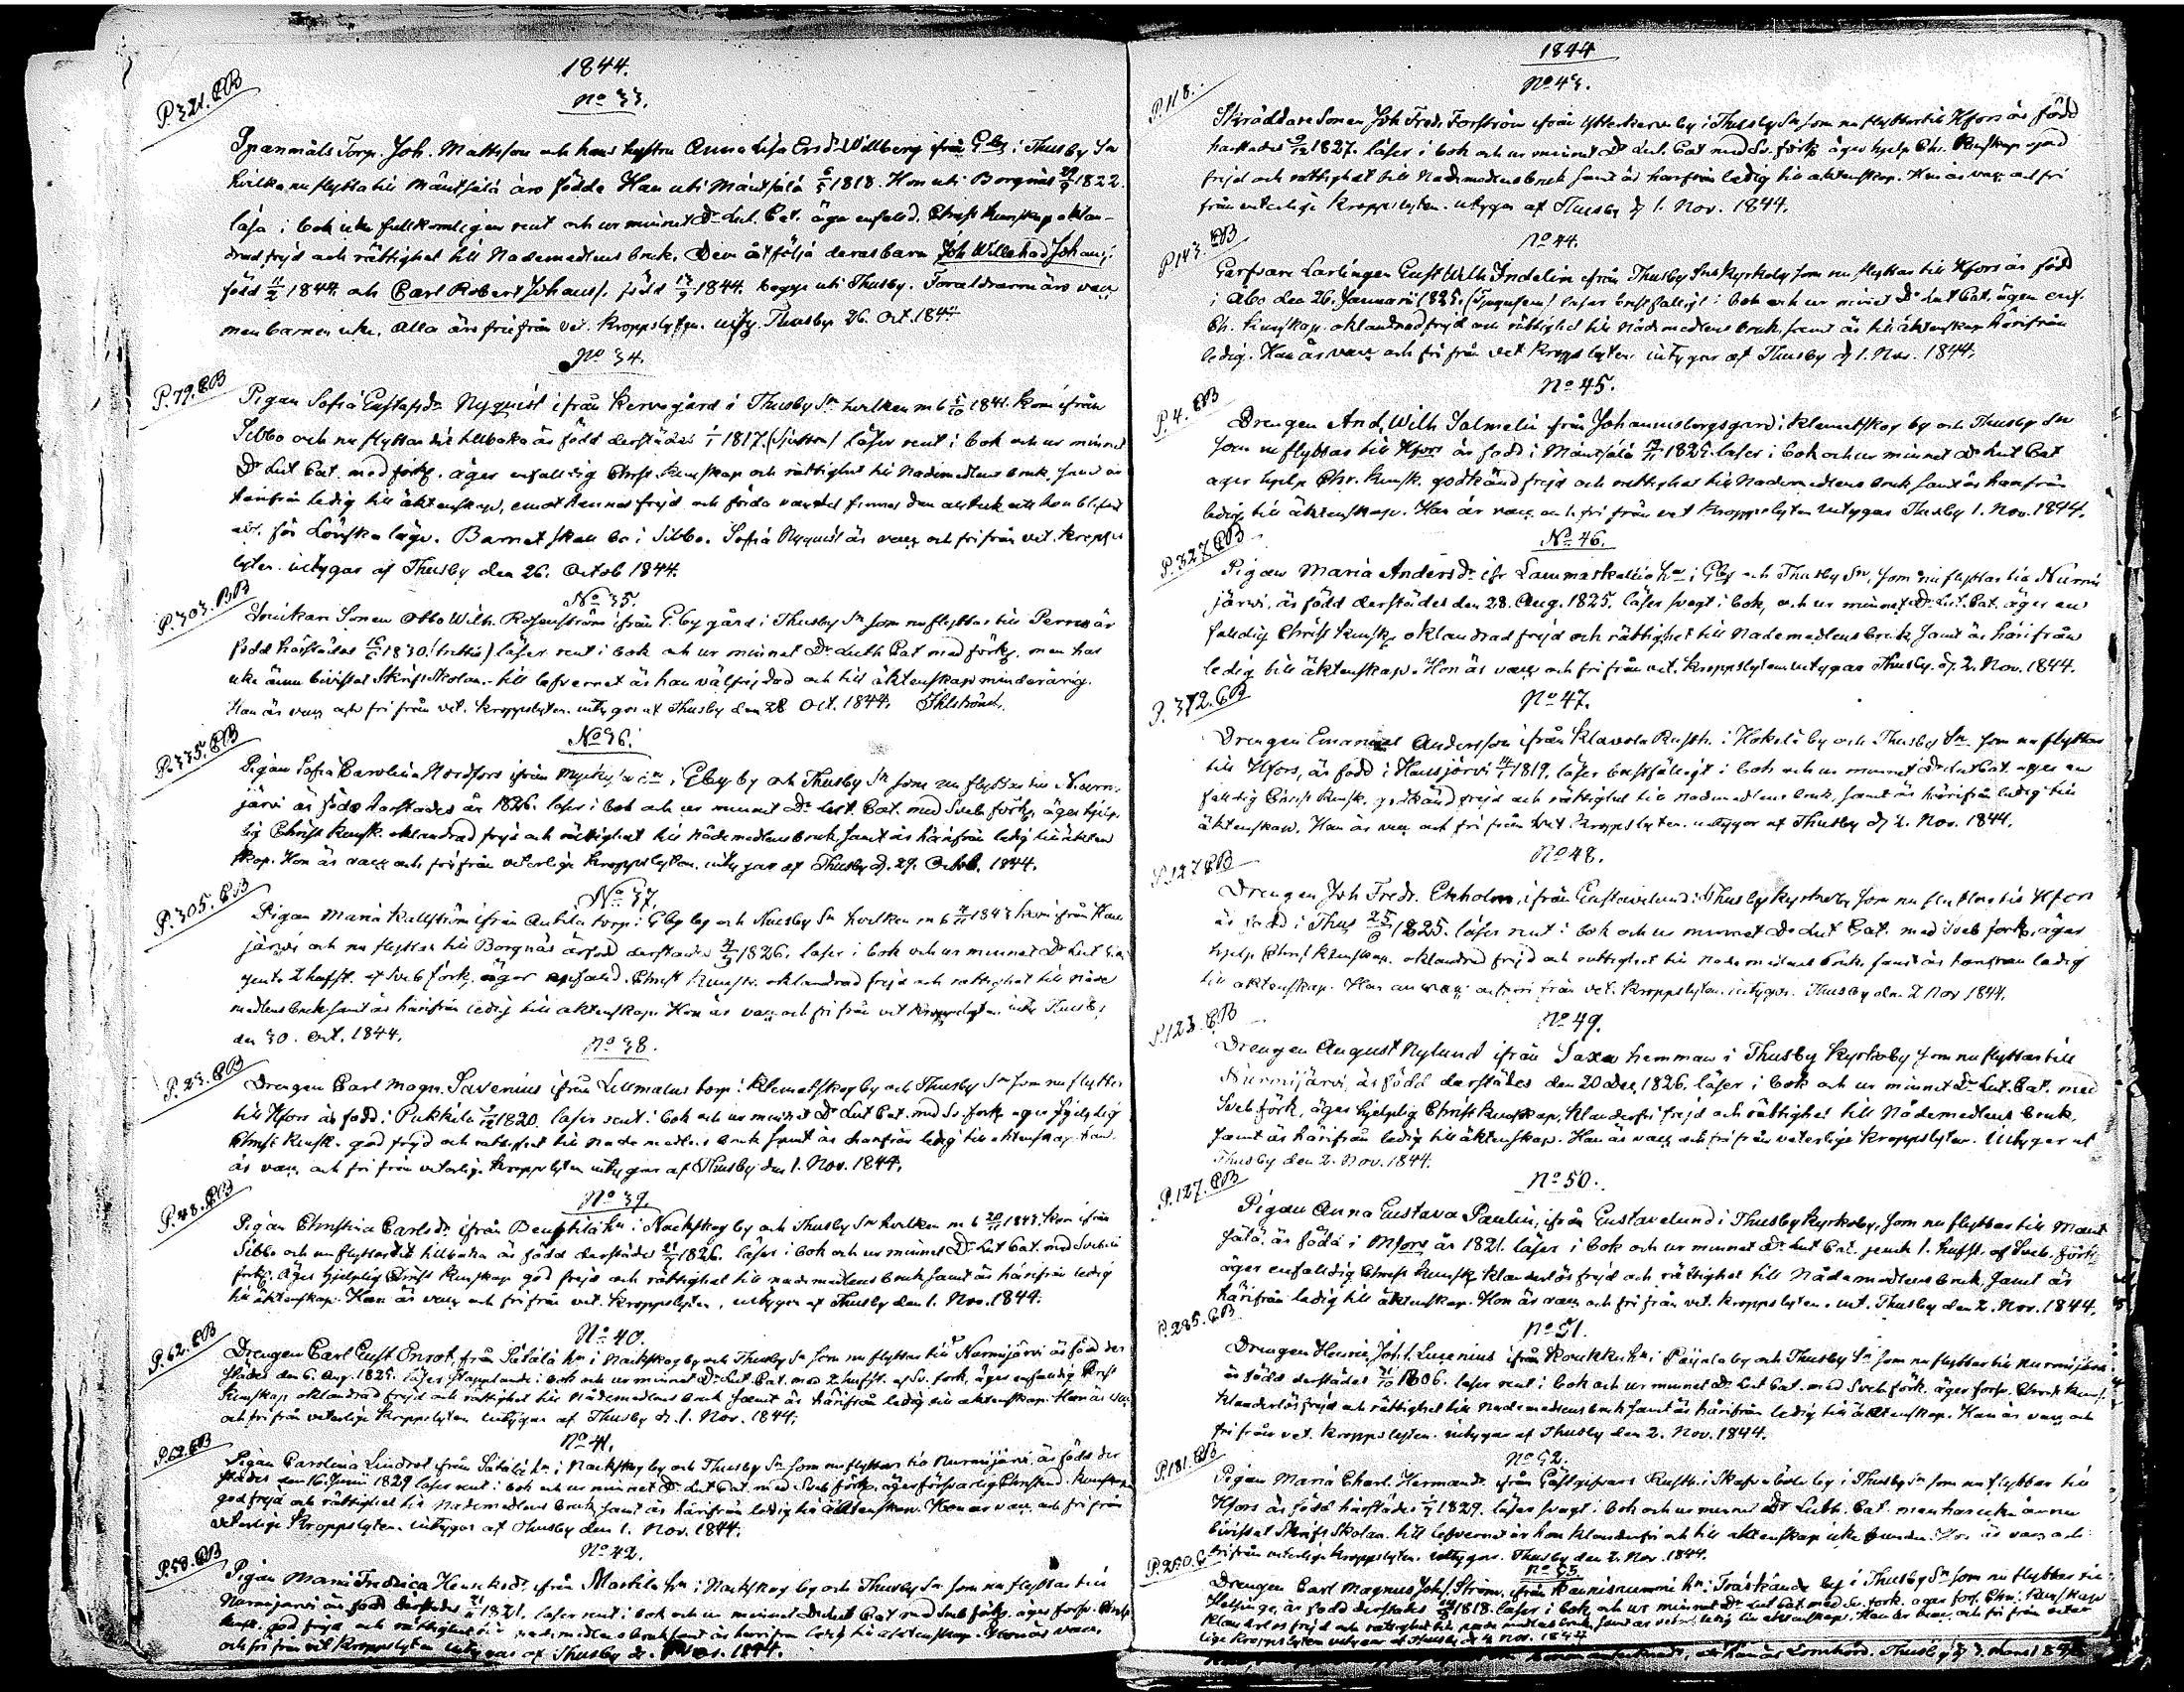 1844.
No 33.
P.321.CB
Spanmåls Torp. Joh. Mattsson och hans hustru Anna Lisa Ersdr Willberg ifrån Gby i Thusby Sn
hvilka nu flytta till Mäntsälä äro födde Han uti Mäntsälä 6/5 1818. Hon uti Borgnäs 29/9 1822.
läsa i bok icke fullkomligen rent och ur minnet Dr Lut. Cat. äga enfald. Christ. kunskap oklan-
drad frejd och rättighet till Nademedlens bruk. Dem åtfölja deras barn Joh Willehad Johans.
född 11/2 1844. och Carl Robert Johanss. född 17/9 1844. begge uti Thusby. Föräldrarne äro vacc
men barnen icke. Alla äro fri från vet. kroppslyten. intyg. Thusby 26. Oct. 1844
No 34.
P.79.CB
Pigan Sofia Gustafsdr Nyquist ifrån Kervo gård i Thusby Sn hvilken m b 5/10 1841. kom ifrån
Sibbo och nu flyttar dit tillbaka är född derstädes 1/1 1817. läser rent i bok och ur minnet
Dr Lut Cat. med förkl. äger enfaldig Christ. kunskap och rättighet till Nademedlens bruk, samt är
härifrån ledig till äktenskap, emot hennes frejd och finnes den att hon blifvit
för Lönskaläge. Barnet skall bo i Sibbo. Sofia Nyquist är vacc och fri från vet. kropps
lyten. intygar af Thusby den 26. Octob 1844.
No 35.
P.303.BB
Sonen Otto Wilh. Rosenström ifrån G.by gård i Thusby Sn som nu flyttar till Perno är
född härstädes 16/6 1830. läser rent i bok och ur minnet Dr Luth Cat med förkl. men har
icke ännu bivistat Skrift Skolan. till lefvernet är han välfrejdad och till äktenskap minderårig.
Han är vacc och fri från vet. kroppslyten. intygar af Thusby den 28 Oct. 1844. Ihlström.
No 36.
P.335.CB
Pigan Sofia Carolina Nordfors ifrån i Gby by och Thusby Sn som nu flyttar till Nurmi-
järvi är född härstädes år 1826. läser i bok och ur minnet Dr Lut. Cat. med Sveb förkl. äger hjelp-
lig Christ kunsk. oklandrad frejd och rättighet till Nådemedlens bruk samt är härifrån ledig till äkten
skap. Hon är vacc och fri från veterlige kroppslyten. intygar af Thusby d. 29. Octob. 1844.
No 37.
P.305.CB
Pigan Maria Kullström ifrån Anttila torp i Gby by och Thusby Sn hvilken m b 1843 kom ifrån
järvi och nu flyttar till Borgnäs är född derstädes 1826. läser i bok och ur minnet Dr Lut
jemte 2 hufst. af Sveb förk. äger enfald. Christ kunsk. oklandrad frejd och rättighet till Nåde
medlens bruk samt är härifrån ledig till äktenskap. Hon är vacc och fri från vet kroppslyten. int. Thusby
den 30. Oct. 1844.
No 38.
P.23.CB
Drengen Carl Magn. Savenius ifrån Lillmalus torp i Klemetskog by och Thusby Sn som nu flyttar
till Hfors är född i Pukkila 1820. läser rent i bok och ur minnet Dr Lut Cat. med Sv. förk. äger hjelplig
Christ kunsk. god frejd och rättighet till Nademedlens bruk samt är härifrån ledig till äktenskap. Han
är vacc och fri från veterlige kroppslyten intygar af Thusby den 1. Nov. 1844.
No 39.
P.48.CB
Pigan Christina Carlsdr ifrån hn i Nackskog by och Thusby Sn hvilken m b 20/11 1843 kom ifrån
Sibbo och nu flyttar dit tillbaka är född derstädes 1826. läser i bok och ur minnet Dr Lut Cat. med Svebelii
förkl. äger hjelplig Christ kunskap god frejd och rättighet till nademedlens bruk samt är härifrån ledig
till äktenskap. Hon är vacc och fri från vet. kroppslyten, intygar af Thusby den 1. Nov. 1844.
No 40.
P.62.CB
Drengen Carl Gust Enrot, från Sätälä hn i Nackskog by och Thusby Sn som nu flyttar till Nurmijärvi är född der
städes den 6. Aug. 1825. läser stapplande i bok och ur minnet Dr Lut Cat. med 2 hufst. af Sv. förk. äger enfaldig Christ
kunskap oklandrad frejd och rättighet till Nådemedlens bruk samt är härifrån ledig till äktenskap. Han är vacc
och fri från veterlige kroppslyten intygar af Thusby d. 1. Nov. 1844.
No 41.
P.62.CB
Pigan Carolina Lindrot ifrån Sätälä hn i Nackskog by och Thusby Sn som nu flyttar till Nurmijärvi, är född der
städes den 16. Junii 1829 läser rent i bok och ur minnet Dr Lut Cat. med Sveb förkl. äger försvarlig Christend. kunskap
god frejd och rättighet till Nademedlens bruk samt är härifrån ledig till äktenskap. Hon är vacc. och fri från
veterlige kroppslyten. intygar af Thusby den 1. Nov. 1844.
No 42.
P.58.CB
Pigan Maria Fredrica Henricsdr ifrån Mattila hn i Nackskog by och Thusby Sn som nu flyttar till
Nurmijärvi är född derstädes 1821. läser rent i bok och ur minnet Dr Lut Cat med Sveb förkl. äger förs. Christ
kunsk. god frejd och rättighet till nademedlens bruk samt är härifrån ledig till äktenskap. Hon är vacc.
och fri från vet kroppslyten intygar af Thusby d. Nov. 1844.
1844
No 43.
P.118.
Skräddare Sonen Joh Fredr Forström ifrån Ytterkervo by i Thusby Sn som nu flyttar till Hfors är född
härstädes 1827. läser i bok och ur minnet Dr Lut. Cat med Sv. förkl äger hjelp Chr. kunskap god
frejd och rättighet till Nademedlens bruk samt är härifrån ledig till äktenskap. Han är vacc och fri
från veterlige kroppslyten. intygar af Thusby d 1. Nov. 1844.
No 44.
P.143.CB
Garfvare Lärlingen Gust Wilh Indelin ifrån Thusby Sns Kyrkoby som nu flyttar till Hfors är född
i Åbo den 26. Januari 1825. läser i bok och ur minnet Dr Lut Cat. äger enf.
Ch. kunskap. oklandrad frejd och rättighet till Nådemedlens bruk, samt är till äktenskap härifrån
ledig. Han är vacc och fri från vet kroppslyten. intygar af Thusby d 1. Nov. 1844.
No 45.
P.4.CB
Drengen And. Wilh Salmelin från Johannisborgs gård i Klemetskog by och Thusby Sn
som nu flyttar till Hfors är född i Mäntsälä 1825. läser i bok och ur minnet Dr Lut Cat
äger hjelp Chr. kunsk. godkänd frejd och rättighet till Nademedlens bruk samt är härifrån
ledig till äktenskap. Han är vacc och fri från vet kroppslyten intygar Thusby 1. Nov. 1844.
No 46.
P.327.CB
Pigan Maria Andersdr ifr Lammaskallio hn i Gby och Thusby Sn, som nu flyttar till Nurmi
järvi, är född derstädes den 28. Aug. 1825. läser svagt i bok, och ur minnet Dr. Lut. Cat. äger en
faldig Christ kunsk. oklandrad frejd och rättighet till Nademedlens bruk samt är härifrån
ledig till äktenskap. Hon är vacc och fri från vet. kroppslyten intygar Thusby d. 2. Nov. 1844.
No 47.
P.372.CB
Drengen Emanuel Andersson ifrån Klavola Rusth. i Hokelä by och Thusby Sn som nu flyttar
till Hfors, är född i Hausjärvi 1819. läser bristfälligt i bok och ur minnet Dr Lut Cat. äger en
faldig Christ kunsk. godkänd frejd och rättighet till nademedlens bruk, samt är härifrån ledig till
äktenskap. Han är vacc och fri från vet kroppslyten. intygar af Thusby d 2. Nov. 1844.
No 48.
P.127.CB
Drengen Joh Fredr. Ekholm, ifrån Gustavelund i Thusby Kyrkoby som nu flyttar till Hfors
är född i Thus 25/6 1825. läser rent i bok och ur minnet Dr Lut Cat. med Sveb förk. äger
hjelp Christ kunskap. oklandrad frejd och rättighet till Nademedlens bruk samt är härifrån ledig
till äktenskap. Han är vacc och fri från vet. kroppslyten. intygar. Thusby den 2 Nov 1844.
No 49.
P.123.CB
Drengen August Nylund ifrån Saxa hemman i Thusby Kyrkoby som nu flyttar till
Nurmijärvi, är född derstädes den 20 Dec. 1826. läser i bok och ur minnet Dr. Lut. Cat. med
Sveb förk, äger hjelplig Christ kunskap, klanderfri frejd och rättighet till Nådemedlens bruk,
samt är härifrån ledig till äktenskap. Han är vacc och fri från veterlige kroppslyten. intygar af
Thusby den 2. Nov. 1844.
No 50.
P.127.CB
Pigan Anna Gustava Paulin, ifrån Gustavelund i Thusby Kyrkoby, som nu flyttar till Mänt
sälä. är född i Hfors år 1821. läser i bok och ur minnet Dr Lut Cat. jemte 1. hufst. af Sveb. förk.
äger enfaldig Christ kunsk. klanderlös frejd och rättighet till Nådemedlens bruk, samt är
härifrån ledig till äktenskap. Hon är vacc och fri från vet. kroppslyten. int. Thusby den 2. Nov. 1844.
No 51.
P.285.CB
Drengen Henric Joh.s. Lucenius ifrån Koukku hn, i Paijala by och Thusby Sn som nu flyttar till Nurmijärvi
är född derstädes 1806. läser rent i bok och ur minnet Dr Lut Cat. med Sveb förk. äger förs. Christ kunsk.
klanderlös frejd och rättighet till Nademedlens bruk samt är härifrån ledig till äktenskap. Han är vacc och
fri från vet. kroppslyten. intygar af Thusby den 2. Nov. 1844.
No 52.
P.181.CB
Pigan Maria Charl. Hermansdr ifrån Gästgifvars Rusth. i by i Thusby Sn som nu flyttar till
Hfors är född härstädes 1829. läser svagt i bok och ur minnet Dr Luth. Cat. men har icke ännu
bivistat Skrift Skolan. till lefvernet är hon klanderfri och till äktenskap icke bunden. Hon är vacc och
fri från veterlige kroppslyten. intygar. Thusby den 2. Nov. 1844.
No 53
P.250.C
Drengen Carl Magnus Johs. Ström. ifrån Kaunisnummi hn i Träskända by i Thusby Sn som nu flyttar till
Helsinge, är född derstädes 1818. läser i bok och ur minnet Dr Lut Cat. med Sv. förk. äger förs. Chri. kunskap
klanderlös frejd och rättighet till nademedlens bruk, samt är ledig till äktenskap. Han är vacc. och fri från veter
lige kroppslyten intygar af Thusby d 4 Nov. 1844